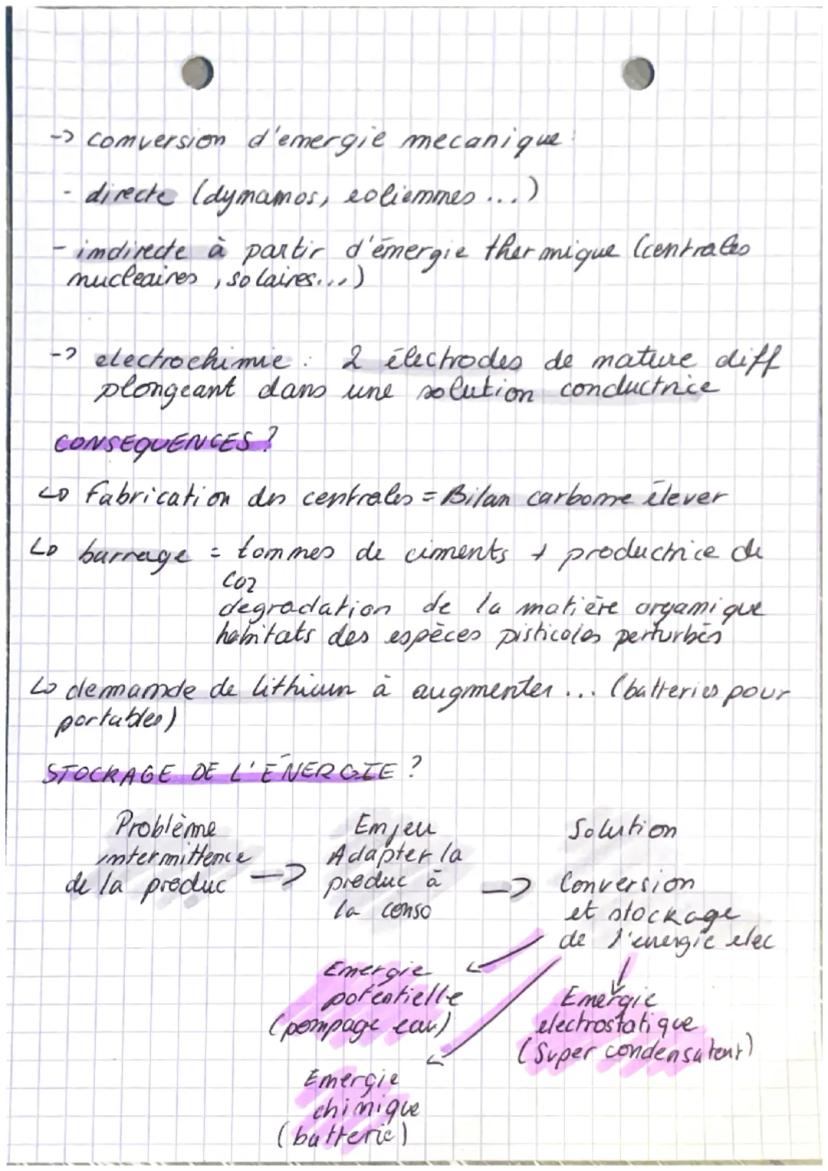 -> conversion d'energie mecanique:
- directe (dynamos, eoliennes...)
- indirecte à partir d'énergie thermique (centrales
nucleaires, solaires...)
-> electrochimie : 2 électrodes de nature diff
plongeant dans une solution conductrice
CONSEQUENCES ?
↳ Fabrication des centrales = Bilan carbone élever
↳ barrage = tonnes de ciments + productrice de
CO2
degradation de la matière organique
habitats des espèces pisticoles perturbés
↳ demande de lithium à augmenter... (batteries pour
portables)
STOCKAGE DE L'ÉNERGIE ?
Problème Enjeu Solution
intermittence Adapter la
de la produc -> produc à -> Conversion
la conso et stockage
de l'energie elec
Energie
potentielle Energie
(pompage eau) electrostatique
(Super condensateur)
Energie
chimique
(batterie)